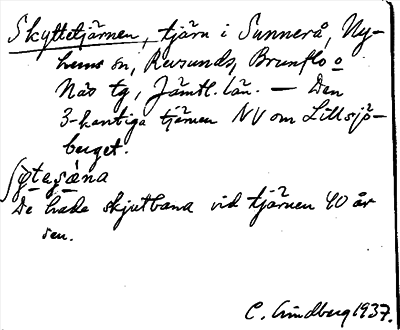 Skyttetjärnen, tjärn i Sunnerå, Ny-
hems sn, Revsunds, Brunflo o
Näs tg, Jämtl. län. — Den
3-kantiga tjärnen NV om Lillsjö-
berget.
De hade skjutbana vid tjärnen 40 år
sen.
C. Lindberg 1937.